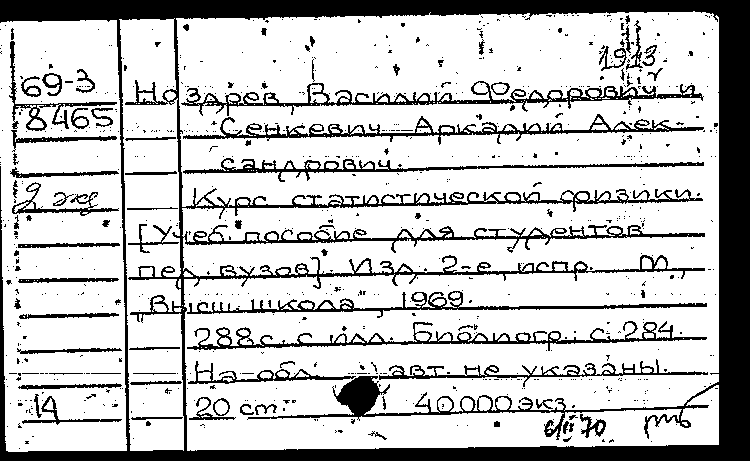 1913
69-3
8465
Ноздрев, Василий Федорович и
Сенкевич, Аркадий Алек-
сандрович.
2 экз
Курс статистической физики.
[Учеб. пособие для студентов
пед. вузов]. Изд. 2-е, испр. М.,
"Высш. школа", 1969.
288 с. с илл. Библиогр.: с. 284.
На обл. авт. не указаны.
14
20 см. 40000 экз.
6/II 70